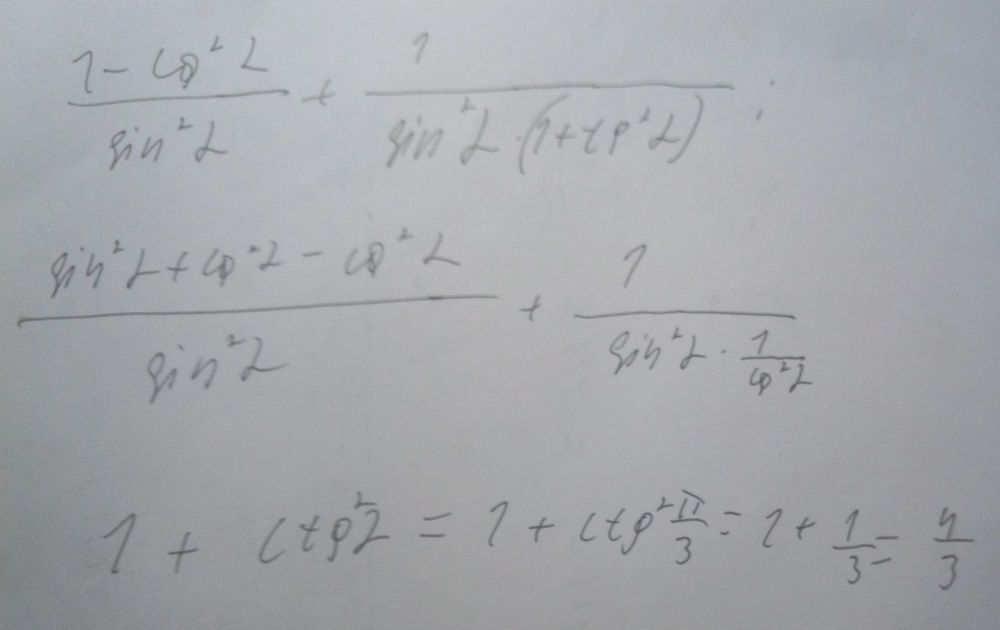 (1 - cos² α) / (sin² α) + 1 / (sin² α · (1 + tg² α)) ;
(sin² α + cos² α - cos² α) / (sin² α) + 1 / (sin² α · 1/(cos² α))
1 + ctg² α = 1 + ctg² π/3 = 1 + 1/3 = 4/3